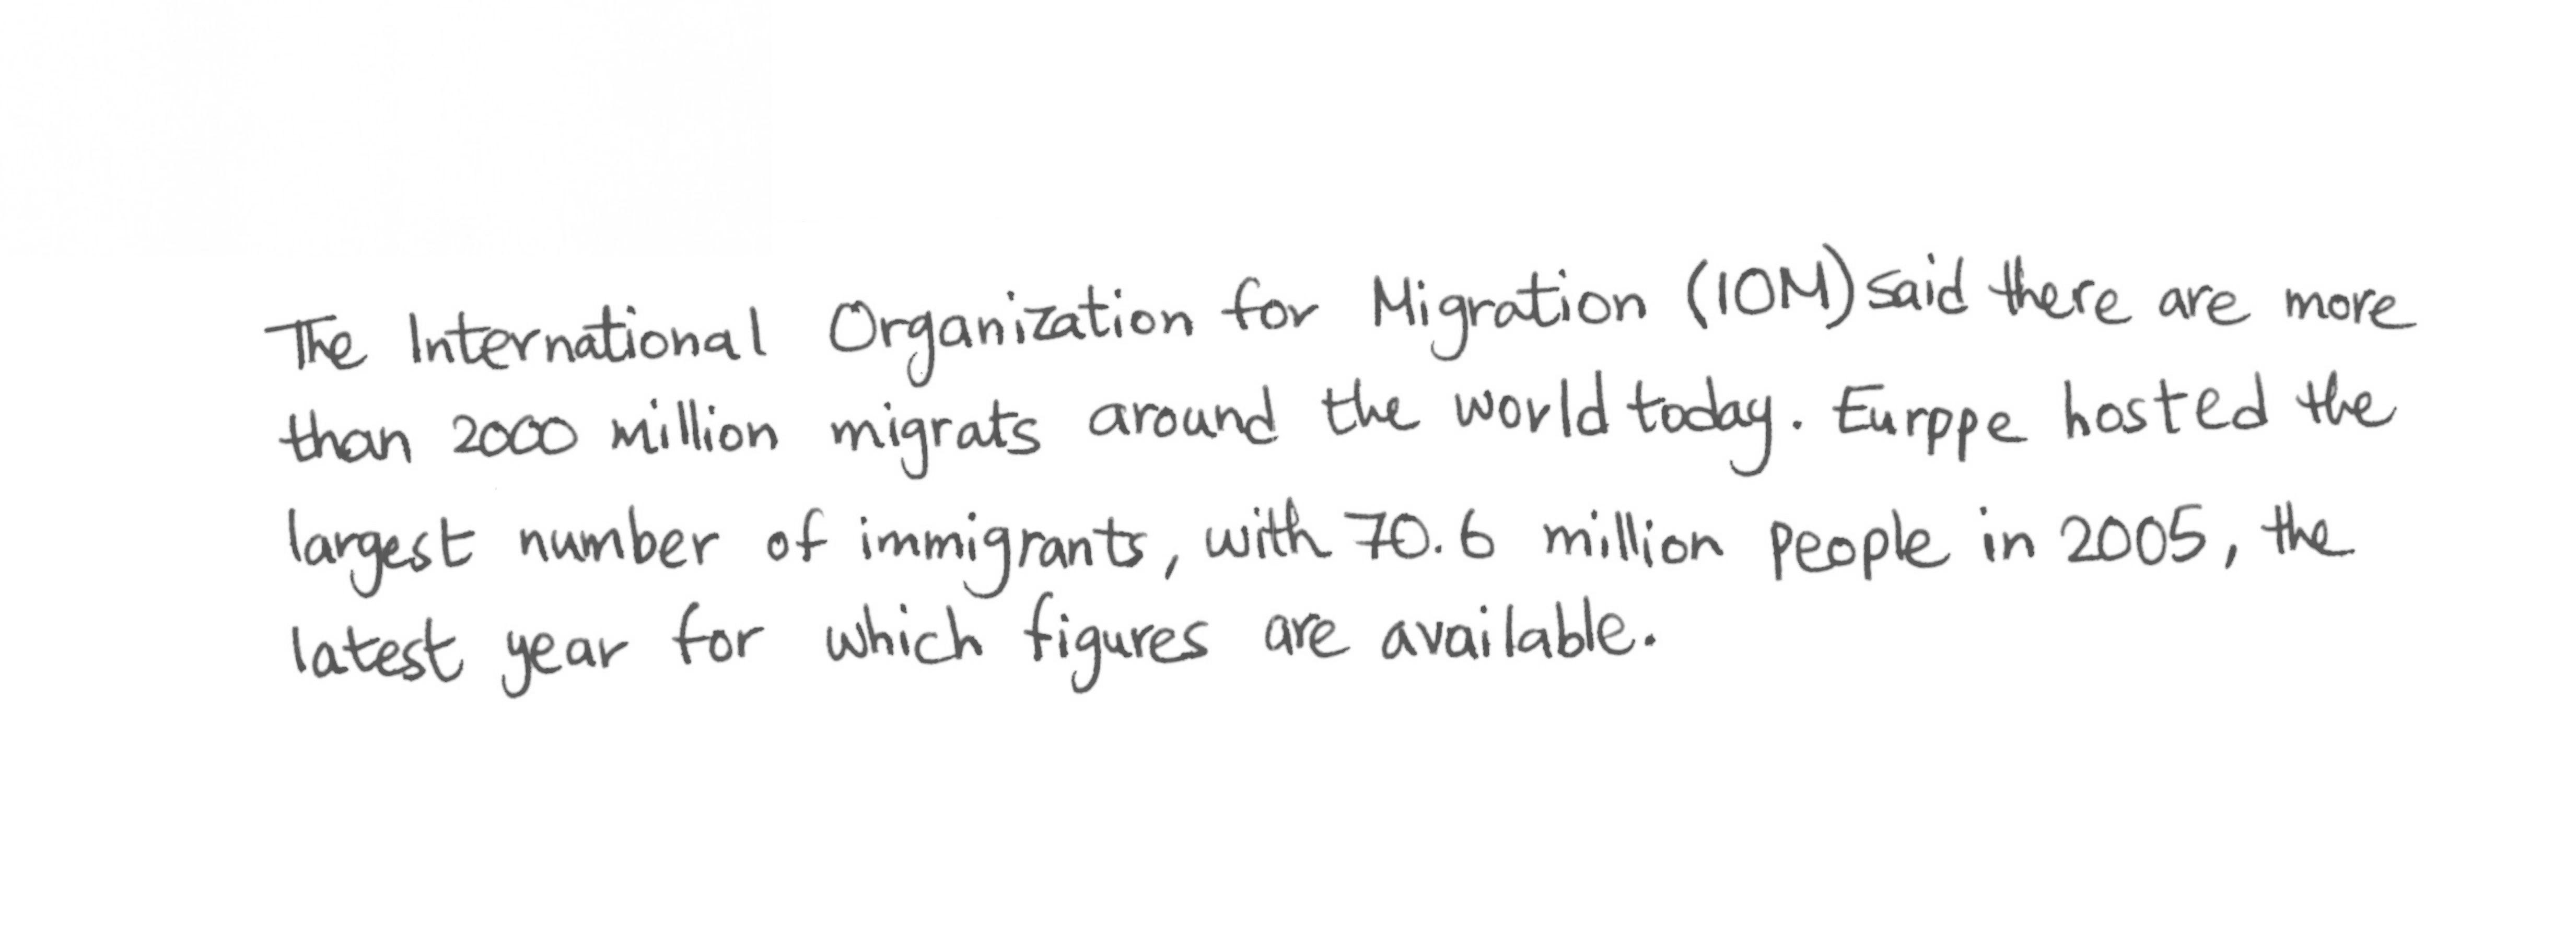 The International Organization for Migration (IOM) said there are more
than 2000 million migrats around the world today. Eurppe hosted the
largest number of immigrants, with 70.6 million people in 2005, the
latest year for which figures are available.